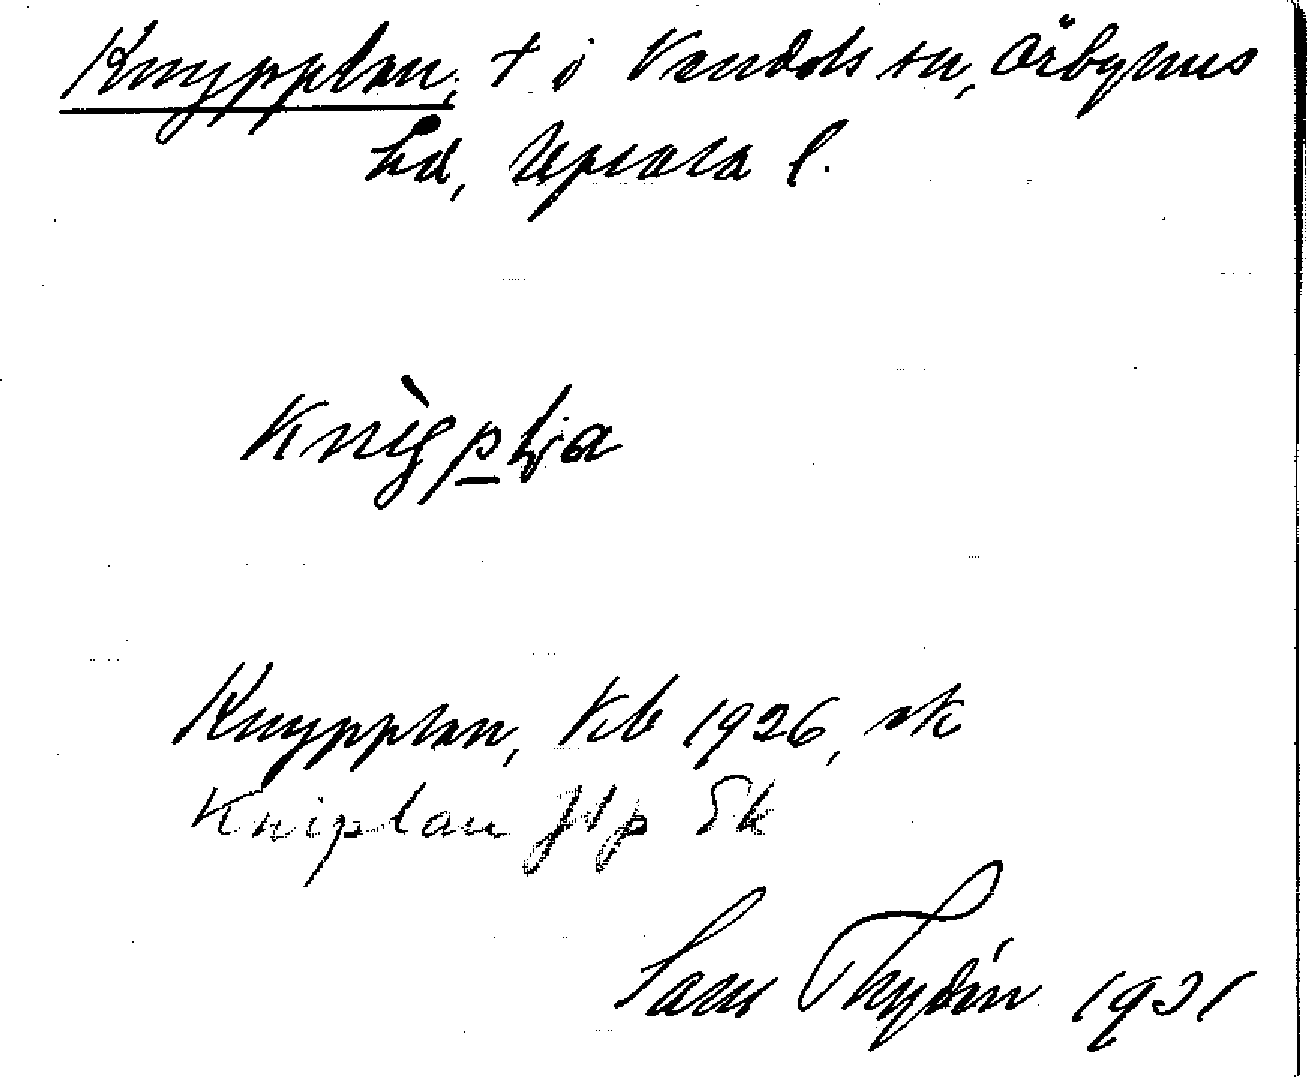 Knypplan, t i Vendels sn, Örbyhus
hd, Upsala l.
Knypplan, Kb 1926, sk
Kniplan Jfp Ek
Sam Thydén 1931